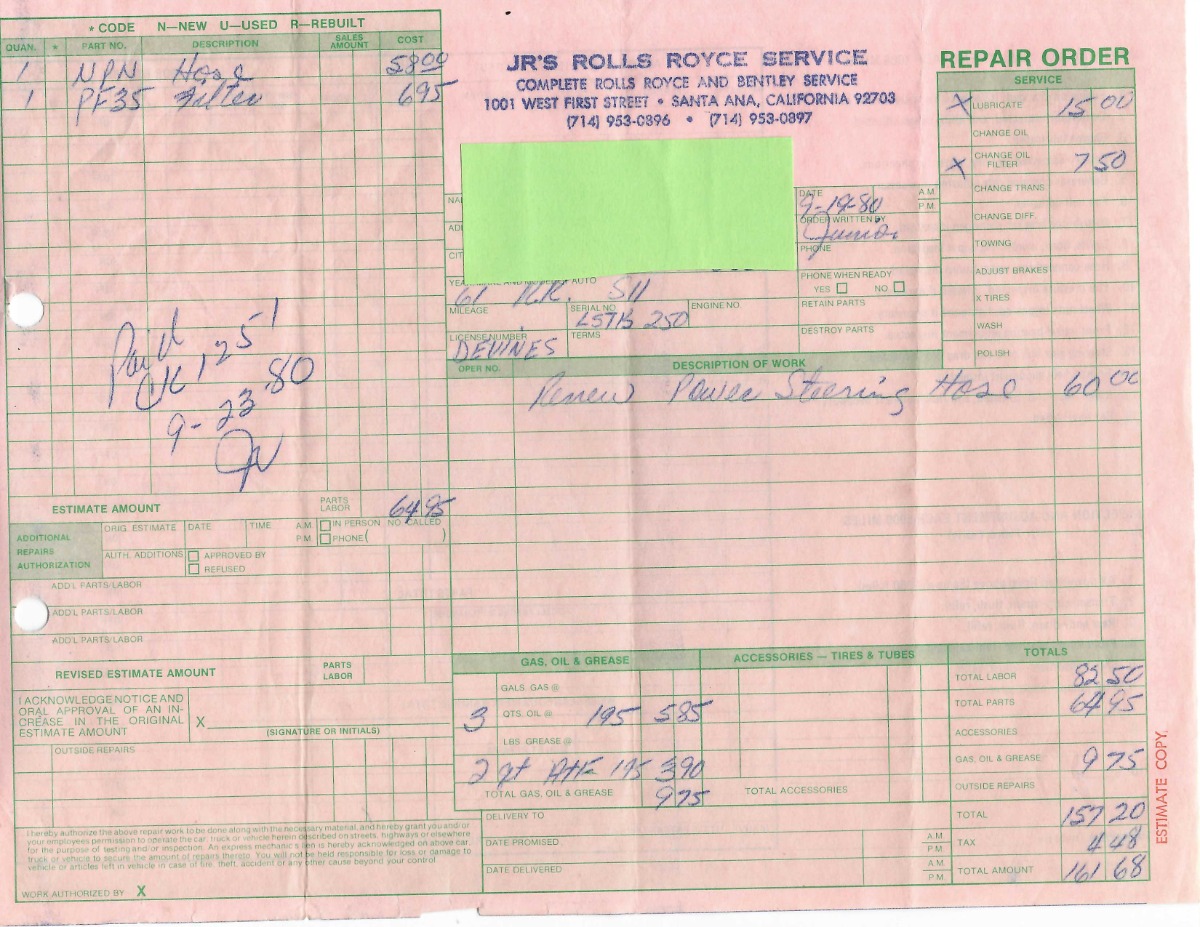 * CODE N—NEW U—USED R—REBUILT
QUAN. * PART NO. DESCRIPTION SALES AMOUNT COST
1 NPN Hose 58 00
1 PF35 Filter 6 95
Paid
CK 1251
9-23-80
ESTIMATE AMOUNT PARTS LABOR 64 95
ADDITIONAL REPAIRS AUTHORIZATION
ORIG. ESTIMATE DATE TIME A.M. P.M. IN PERSON NO. CALLED PHONE ( )
AUTH. ADDITIONS APPROVED BY
REFUSED
ADD'L PARTS/LABOR
ADD'L PARTS/LABOR
ADD'L PARTS/LABOR
REVISED ESTIMATE AMOUNT PARTS LABOR
I ACKNOWLEDGE NOTICE AND
ORAL APPROVAL OF AN IN-
CREASE IN THE ORIGINAL
ESTIMATE AMOUNT X
(SIGNATURE OR INITIALS)
OUTSIDE REPAIRS
I hereby authorize the above repair work to be done along with the necessary material, and hereby grant you and/or
your employees permission to operate the car, truck or vehicle herein described on streets, highways or elsewhere
for the purpose of testing and/or inspection. An express mechanic's lien is hereby acknowledged on above car,
truck or vehicle to secure the amount of repairs thereto. You will not be held responsible for loss or damage to
vehicle or articles left in vehicle in case of fire, theft, accident or any other cause beyond your control.
WORK AUTHORIZED BY X
JR'S ROLLS ROYCE SERVICE
COMPLETE ROLLS ROYCE AND BENTLEY SERVICE
1001 WEST FIRST STREET • SANTA ANA, CALIFORNIA 92703
(714) 953-0896 • (714) 953-0897
DATE 9-19-80 A.M. P.M.
ORDER WRITTEN BY
PHONE
PHONE WHEN READY
YES NO
AUTO
61 R.R. S11
MILEAGE SERIAL NO. LSTB 250 ENGINE NO. RETAIN PARTS
LICENSE NUMBER DEVINES TERMS DESTROY PARTS
OPER NO. DESCRIPTION OF WORK
Renew Power Steering Hose 60 00
REPAIR ORDER
SERVICE
X LUBRICATE 15 00
CHANGE OIL
X CHANGE OIL FILTER 7 50
CHANGE TRANS
CHANGE DIFF.
TOWING
ADJUST BRAKES
X TIRES
WASH
POLISH
GAS, OIL & GREASE
GALS. GAS @
3 QTS. OIL @ 195 5 85
LBS. GREASE @
2 qt ATF 195 3 90
TOTAL GAS, OIL & GREASE 9 75
ACCESSORIES — TIRES & TUBES
TOTAL ACCESSORIES
DELIVERY TO
DATE PROMISED A.M. P.M.
DATE DELIVERED A.M. P.M.
TOTALS
TOTAL LABOR 82 50
TOTAL PARTS 64 95
ACCESSORIES
GAS, OIL & GREASE 9 75
OUTSIDE REPAIRS
TOTAL 157 20
TAX 4 48
TOTAL AMOUNT 161 68
ESTIMATE COPY.